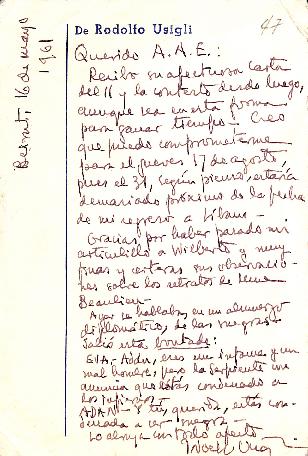 De Rodolfo Usigli
47
Beirut, 16 de mayo
1961
Querido A. A. E.:
Recibo su afectuosa carta
del 11 y la contesto desde luego,
aunque sea en esta forma
para ganar tiempo! Creo
que puedo comprometerme
para el jueves 17 de agosto,
pues el 31, según pienso, estaría
demasiado próximo de la fecha
de mi regreso a Líbano.
Gracias por haber pasado mi
articulillo a Wilberto y muy
finas y certeras sus observacio-
nes sobre los retratos de Mme
Beaulieu.
Ayer se hablaba, en un almuerzo
diplomático, de los negros.
Salió esta boutade:
EVA: Adán, eres un infame y un
mal hombre, pero la serpiente me
anuncia que estás condenado a
los infiernos.
ADAN: Y tú, querida, estás con-
denada a ser negra.
Lo abraza con todo afecto